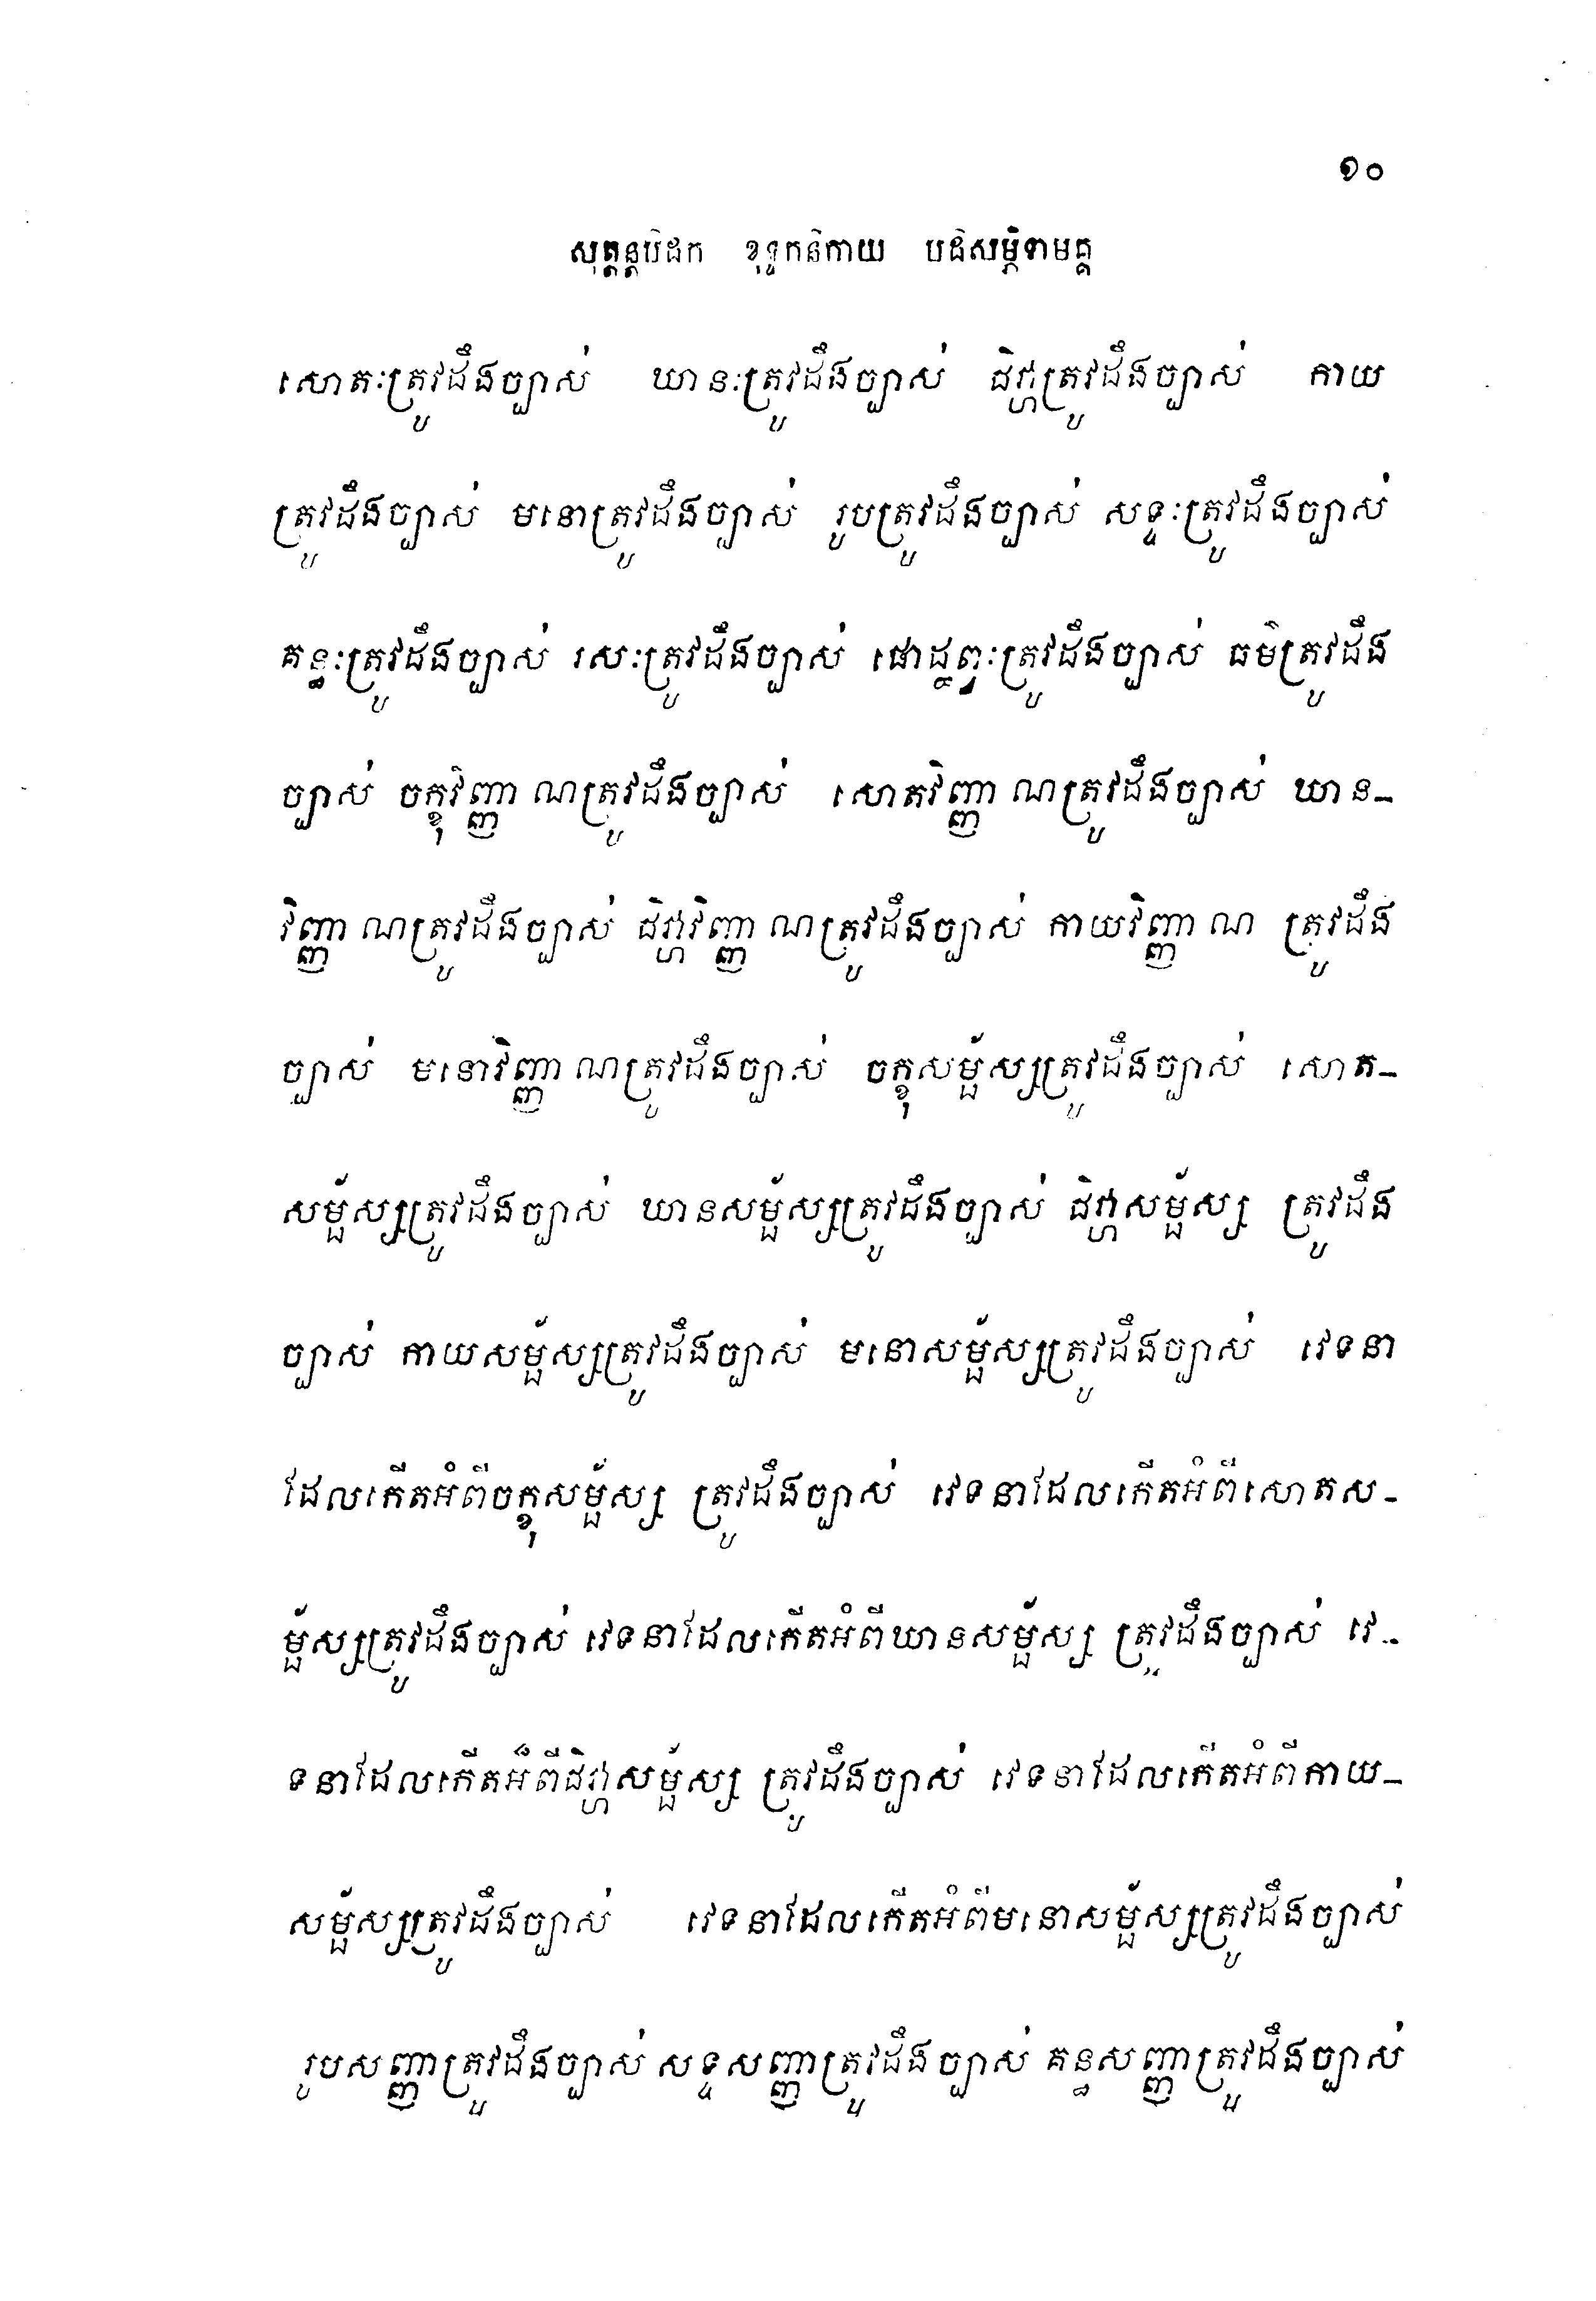 ១០
សុត្តន្តបិដក ខុទ្ទកនិកាយ បដិសម្ភិទាមគ្គ
សោតៈត្រូវដឹងច្បាស់ ឃានៈត្រូវដឹងច្បាស់ ជិវ្ហាត្រូវដឹងច្បាស់ កាយ
ត្រូវដឹងច្បាស់ មនោត្រូវដឹងច្បាស់ រូបត្រូវដឹងច្បាស់ សទ្ទៈត្រូវដឹងច្បាស់
គន្ធៈត្រូវដឹងច្បាស់ រសៈត្រូវដឹងច្បាស់ ផោដ្ឋព្វៈត្រូវដឹងច្បាស់ ធម៌ត្រូវដឹង
ច្បាស់ ចក្ខុវិញ្ញាណត្រូវដឹងច្បាស់ សោតវិញ្ញាណត្រូវដឹងច្បាស់ ឃាន-
វិញ្ញាណត្រូវដឹងច្បាស់ ជិវ្ហាវិញ្ញាណត្រូវដឹងច្បាស់ កាយវិញ្ញាណ ត្រូវដឹង
ច្បាស់ មនោវិញ្ញាណត្រូវដឹងច្បាស់ ចក្ខុសម្ផ័ស្សត្រូវដឹងច្បាស់ សោត-
សម្ផ័ស្សត្រូវដឹងច្បាស់ ឃានសម្ផ័ស្សត្រូវដឹងច្បាស់ ជិវ្ហាសម្ផ័ស្ស ត្រូវដឹង
ច្បាស់ កាយសម្ផ័ស្សត្រូវដឹងច្បាស់ មនោសម្ផ័ស្សត្រូវដឹងច្បាស់ វេទនា
ដែលកើតអំពីចក្ខុសម្ផ័ស្ស ត្រូវដឹងច្បាស់ វេទនាដែលកើតអំពីសោតស-
ម្ផ័ស្សត្រូវដឹងច្បាស់ វេទនាដែលកើតអំពីឃានសម្ផ័ស្ស ត្រូវដឹងច្បាស់ វេ-
ទនាដែលកើតអំពីជិវ្ហាសម្ផ័ស្ស ត្រូវដឹងច្បាស់ វេទនាដែលកើតអំពីកាយ-
សម្ផ័ស្សត្រូវដឹងច្បាស់ វេទនាដែលកើតអំពីមនោសម្ផ័ស្សត្រូវដឹងច្បាស់
រូបសញ្ញាត្រូវដឹងច្បាស់ សទ្ទសញ្ញាត្រូវដឹងច្បាស់ គន្ធសញ្ញាត្រូវដឹងច្បាស់